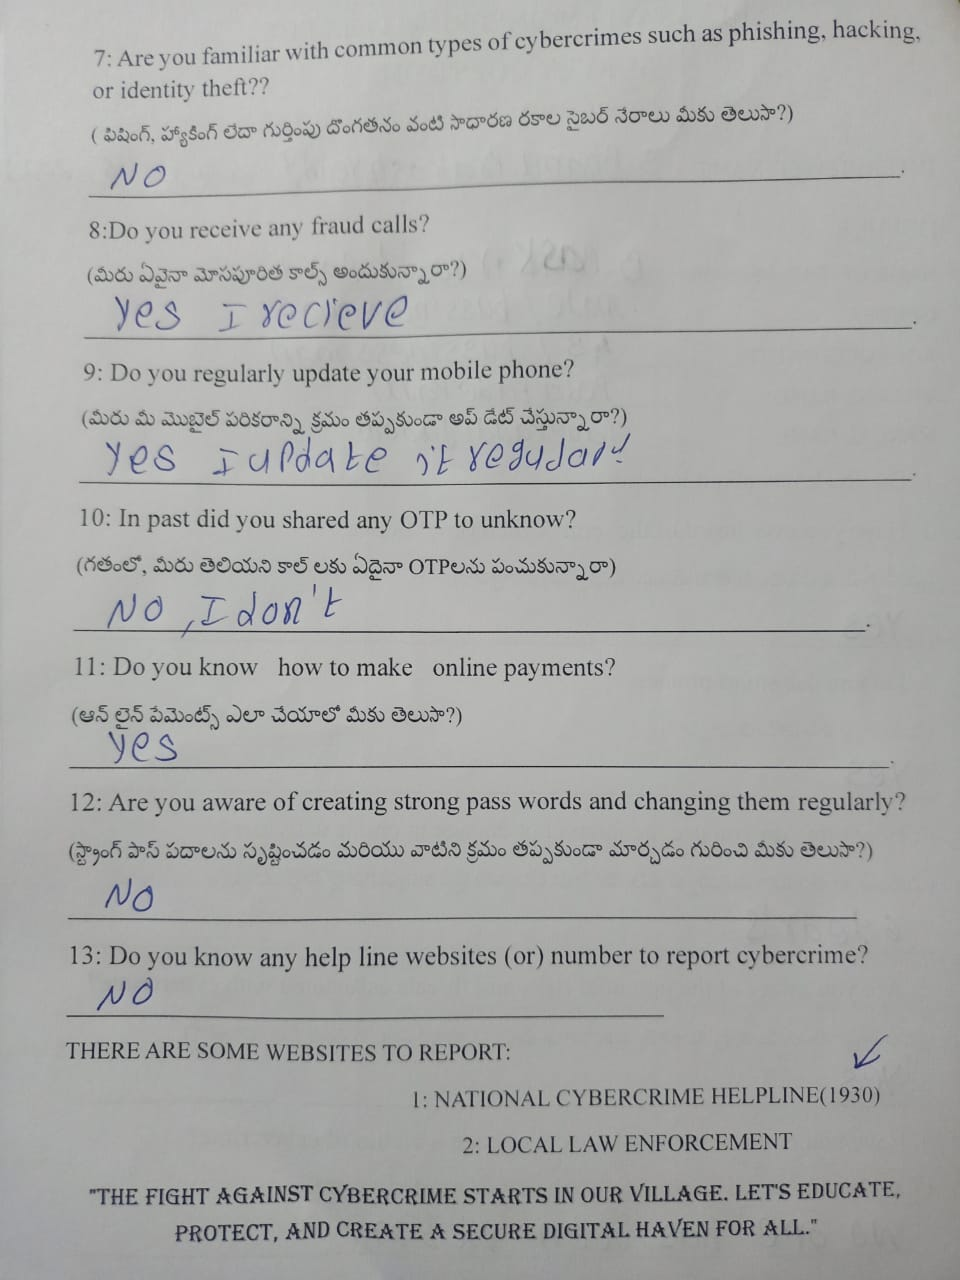 7: Are you familiar with common types of cybercrimes such as phishing, hacking,
or identity theft??
( ఫిషింగ్, హ్యాకింగ్ లేదా గుర్తింపు దొంగతనం వంటి సాధారణ రకాల సైబర్ నేరాలు మీకు తెలుసా?)
NO
8:Do you receive any fraud calls?
(మీరు ఏవైనా మోసపూరిత కాల్స్ అందుకున్నారా?)
Yes I recieve
9: Do you regularly update your mobile phone?
(మీరు మీ మొబైల్ పరికరాన్ని క్రమం తప్పకుండా అప్ డేట్ చేస్తున్నారా?)
Yes I update it
10: In past did you shared any OTP to unknow?
(గతంలో, మీరు తెలియని కాల్ లకు ఏదైనా OTPలను పంచుకున్నారా)
NO, I don't
11: Do you know how to make online payments?
(ఆన్ లైన్ పేమెంట్స్ ఎలా చేయాలో మీకు తెలుసా?)
Yes
12: Are you aware of creating strong pass words and changing them regularly?
(స్ట్రాంగ్ పాస్ పదాలను సృష్టించడం మరియు వాటిని క్రమం తప్పకుండా మార్చడం గురించి మీకు తెలుసా?)
NO
13: Do you know any help line websites (or) number to report cybercrime?
NO
THERE ARE SOME WEBSITES TO REPORT:
1: NATIONAL CYBERCRIME HELPLINE(1930)
2: LOCAL LAW ENFORCEMENT
"THE FIGHT AGAINST CYBERCRIME STARTS IN OUR VILLAGE. LET'S EDUCATE,
PROTECT, AND CREATE A SECURE DIGITAL HAVEN FOR ALL."